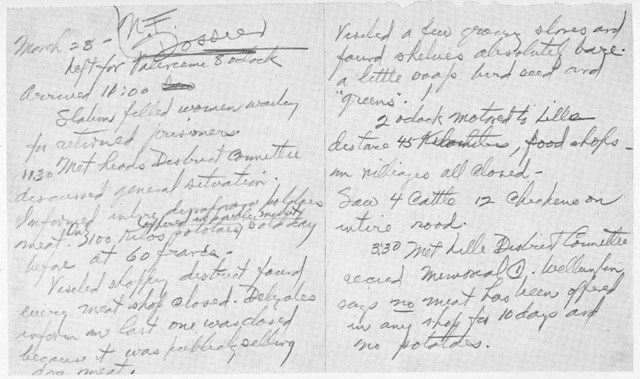 N.F.
Dossier
March 28 -
Left for Valencienne 8 oclock
Arrived 10:00
Stations filled women waiting
for returned prisoners.
11.30 Met heads District Committee
discussed general situation.
Informed entire disappearance potatoes
meat. 3100 Kilos potatoes sold day
before at 60 francs -
Visited shopping district found
every meat shop closed. Delegates
inform me last one was closed
because it was publicly selling
dog meat.
Visited a few grocery stores and
found shelves absolutely bare.
a little soap bird seed and
"greens".
2 oclock motored to Lille
distance 45 Kilometers, food shops -
in villiages all closed -
Saw 4 Cattle 12 Chickens on
entire road.
3:30 Met Lille District Committee
recied Memorial ①.
says no meat has been offered
in any shop for 10 days and
no potatoes.